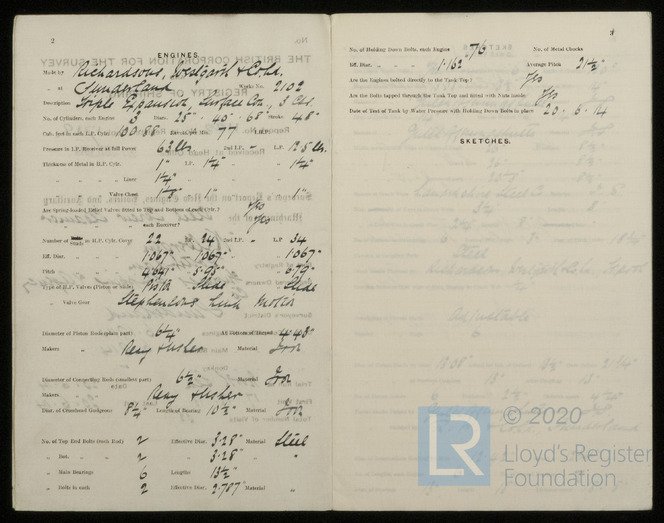 2
ENGINES.
Made by Richardsons, Westgarth & Co Ld.
at Sunderland Works No. 2102
Description Triple Expansion, Surface Con., 3 Cyls.
No. of Cylinders, each Engine 3 Diar. 25" 40" 68" Stroke 48"
Cub. feet in each L.P. Cyl. 100.88 77
Pressure in I.P. Receiver at full Power 63 lbs 2nd I.P. " L.P. 12.5 lbs.
Thickness of Metal in H.P. Cylr. 1" I.P. 1¼" 1¼"
" Liner 1¼"
" Valve Chest 1" 1"
Are Spring-loaded Relief Valves fitted to Top and Bottom of each Cylr.? Yes
" each Receiver? Yes
Number of Studs in H.P. Cylr. Cover 22 I.P. 24 2nd I.P. " L.P. 34
Eff. Diar. 1.067" 1.067" 1.067"
Pitch 4.641" 5.95" 6.79"
Type of H.P. Valves (Piston or Slide) Piston Slide Slide
" Valve Gear Stephensons Link Motion
Diameter of Piston Rods (plain part) 6¼" At Bottom of Thread 4.043"
Makers Material Iron
Diameter of Connecting Rods (smallest part) 6½" Material Iron
Makers
Diar. of Crosshead Gudgeons 8¼" Length of Bearing 10½" Material Iron
No. of Top End Bolts (each Rod) 2 Effective Diar. 3.28" Material Steel
" Bot. " 2 " 3.28" "
" Main Bearings 6 Lengths 13½"
" Bolts in each 2 Effective Diar. 2.787" Material "
3
No. of Holding Down Bolts, each Engine 76 No. of Metal Chocks
Eff. Diar. 1.162" Average Pitch 21½"
Are the Engines bolted directly to the Tank Top? Yes
Are the Bolts tapped through the Tank Top and fitted with Nuts inside? Yes
Date of Test of Tank by Water Pressure with Holding Down Bolts in place 20.6.14
SKETCHES.
© 2020
LR
Lloyd's Register
Foundation